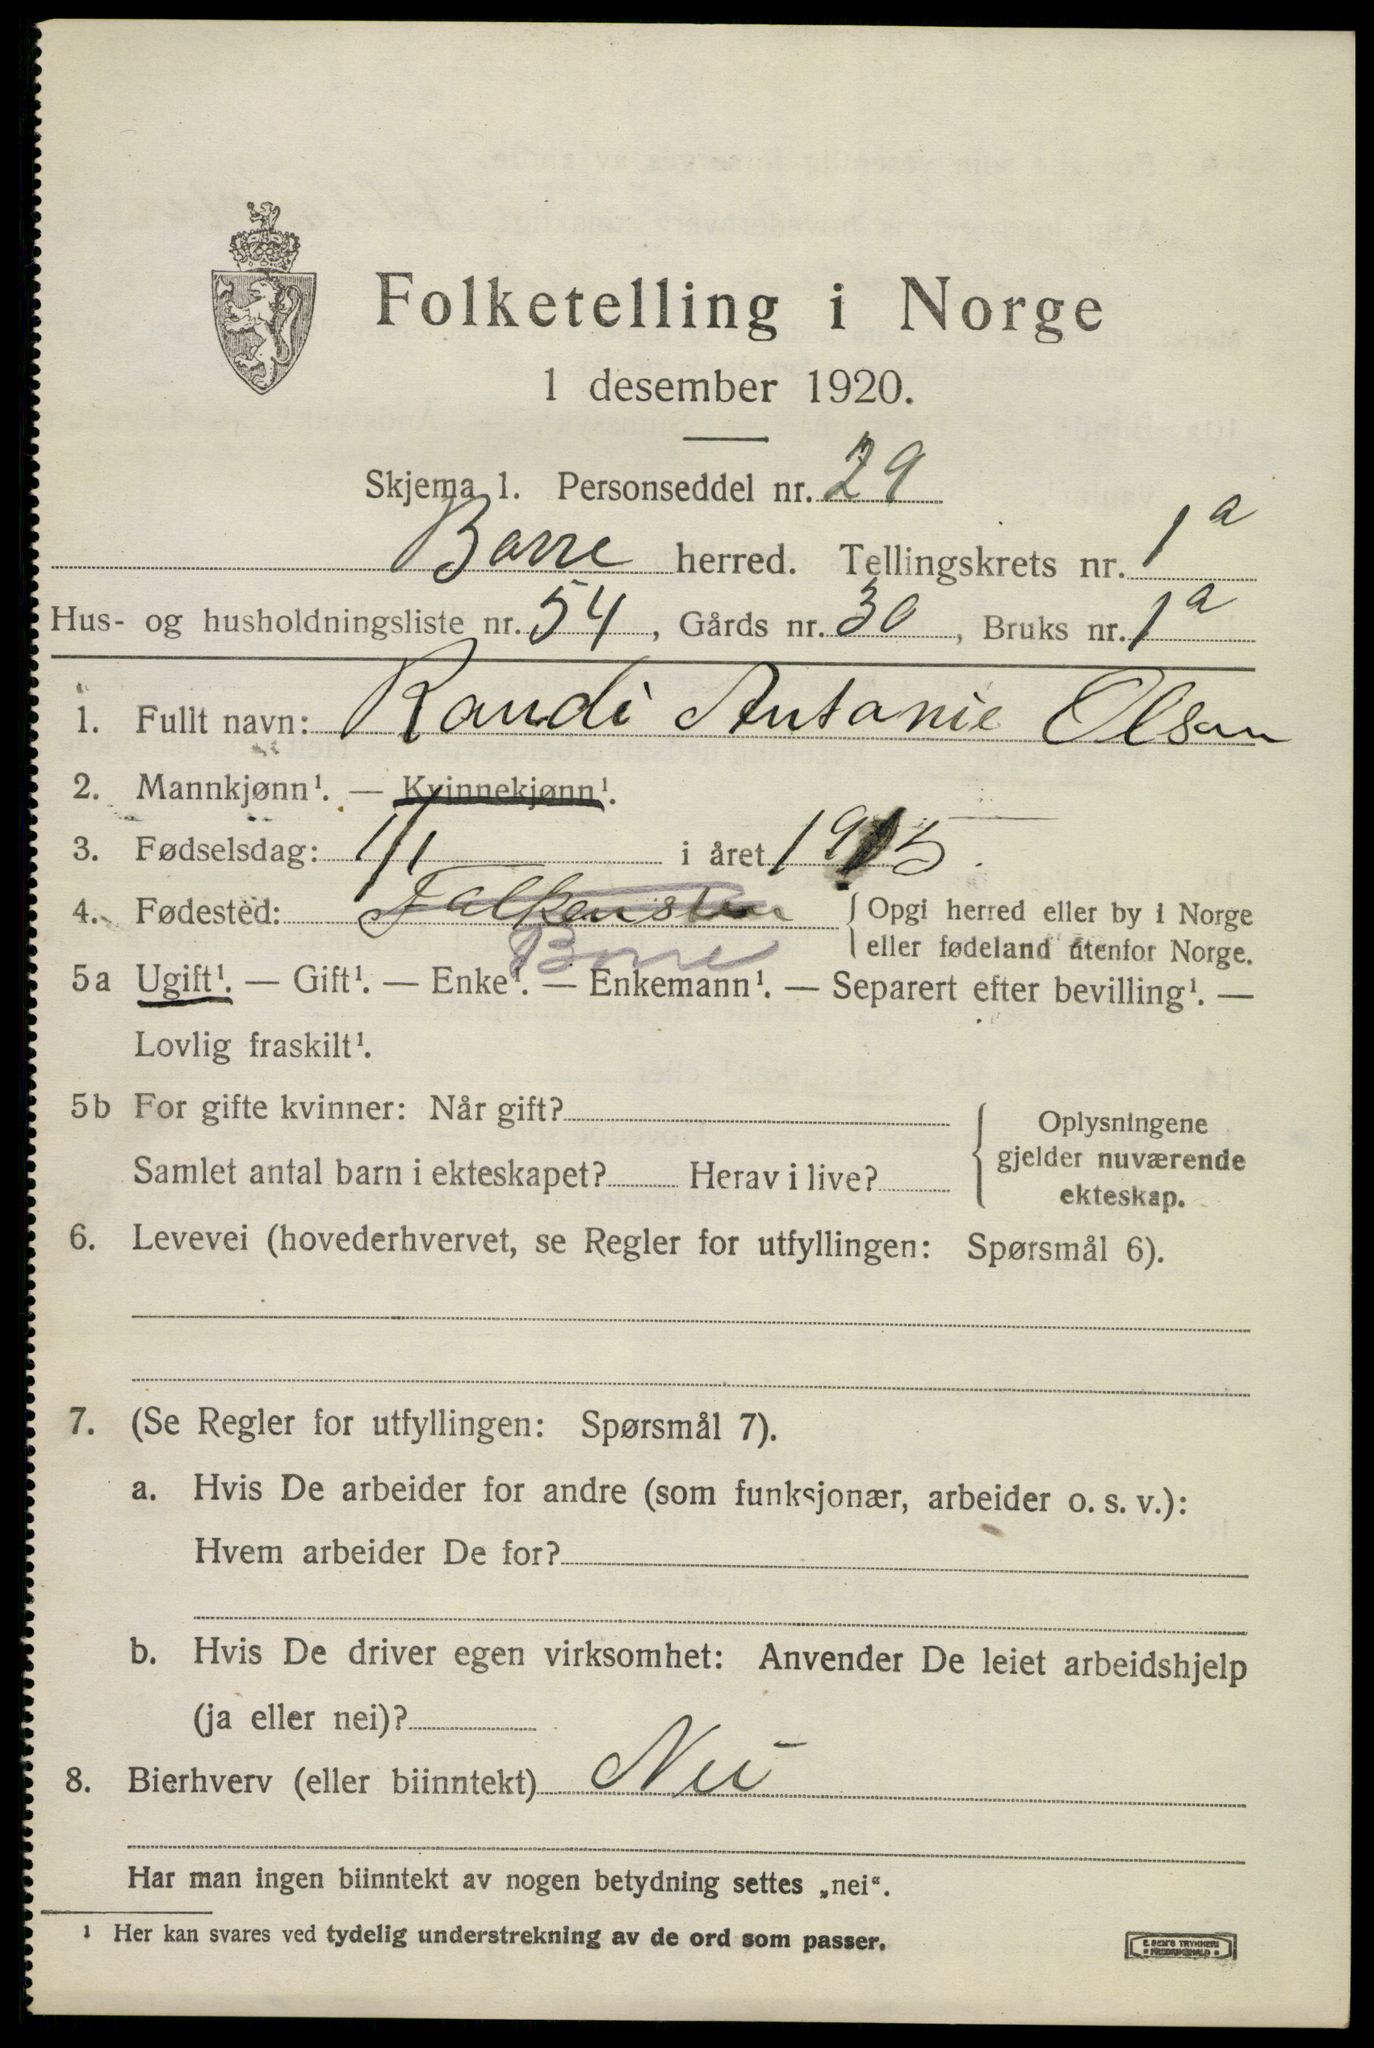 Folketelling i Norge
1 desember 1920.
Skjema 1. Personseddel nr. 29
Borre herred. Tellingskrets nr. 1a
Hus- og husholdningsliste nr. 54, Gårds nr. 30, Bruks nr. 1a
1. Fullt navn: Randi Antonie Olsen
2. Mannkjønn¹. — Kvinnekjønn¹.
3. Fødselsdag: 1/1 i året 1915.
4. Fødested: Falkensten { Opgi herred eller by i Norge
Borre eller fødeland utenfor Norge.
5a Ugift¹. — Gift¹. — Enke¹. — Enkemann¹. — Separert efter bevilling¹. —
Lovlig fraskilt¹.
5b For gifte kvinner: Når gift? { Oplysningene
gjelder nuværende
Samlet antal barn i ekteskapet? Herav i live? ekteskap.
6. Levevei (hovederhvervet, se Regler for utfyllingen: Spørsmål 6).
7. (Se Regler for utfyllingen: Spørsmål 7).
a. Hvis De arbeider for andre (som funksjonær, arbeider o. s. v.):
Hvem arbeider De for?
b. Hvis De driver egen virksomhet: Anvender De leiet arbeidshjelp
(ja eller nei)?
8. Bierhverv (eller biinntekt) Nei
Har man ingen biinntekt av nogen betydning settes „nei“.
¹ Her kan svares ved tydelig understrekning av de ord som passer.
E. SEM'S TRYKKERI
FREDRIKSHALD